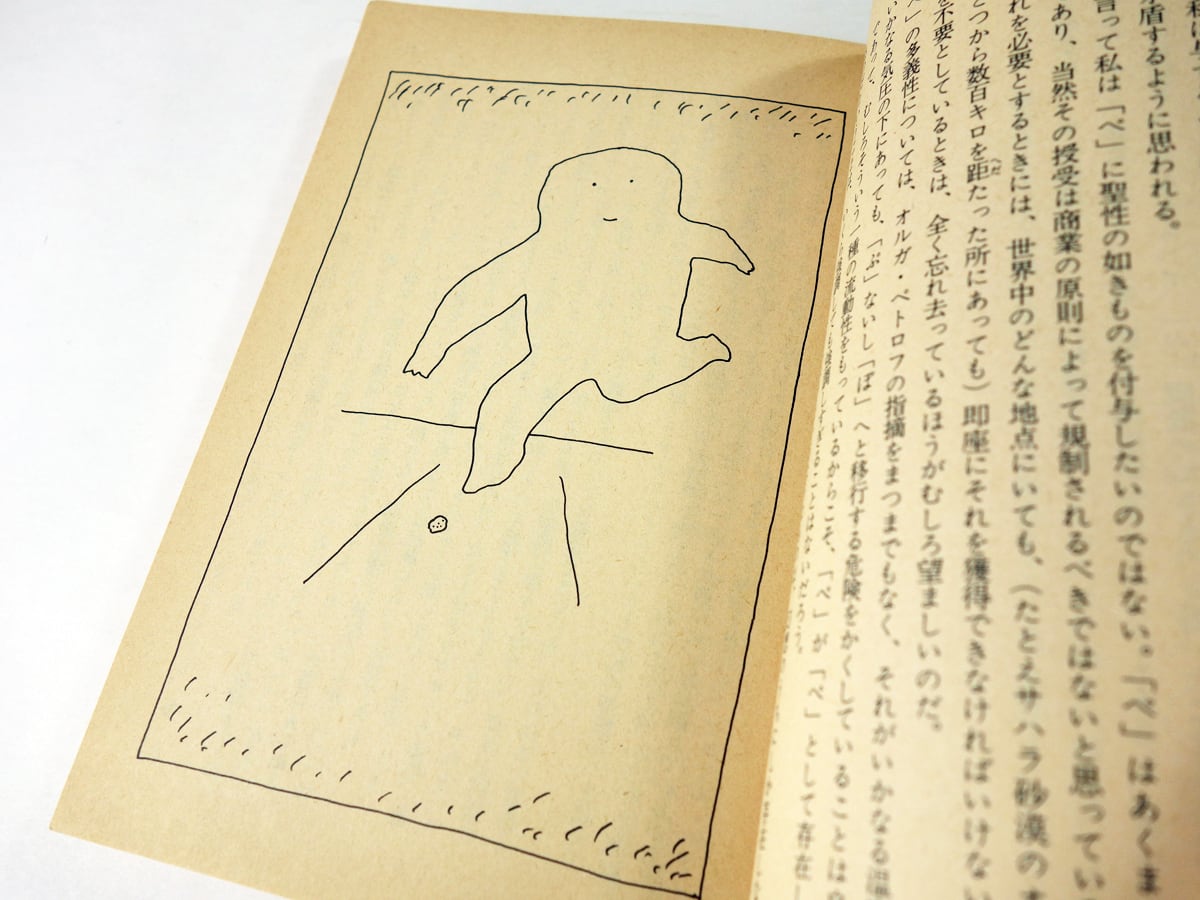 盾するように思われる。
言って私は「ぺ」に聖性の如きものを付与したいのではない。「ぺ」はあくま
あり、当然その授受は商業の原則によって規制されるべきではないと思ってい
れを必要とするときには、世界中のどんな地点にいても、（たとえサハラ砂漠の
つから数百キロを距たった所にあっても）即座にそれを獲得できなければいけない
を不要としているときは、全く忘れ去っているほうがむしろ望ましいのだ。
ぺ」の多義性については、オルガ・ペトロフの指摘をまつまでもなく、それがいかなる温
いかなる気圧の下にあっても、「ぷ」ないし「ぽ」へと移行する危険をかくしていることは
であって、むしろそういう一種の流動性をもっているからこそ、「ぺ」が「ぺ」として存在し
強調しても強調しすぎることはないだろう。